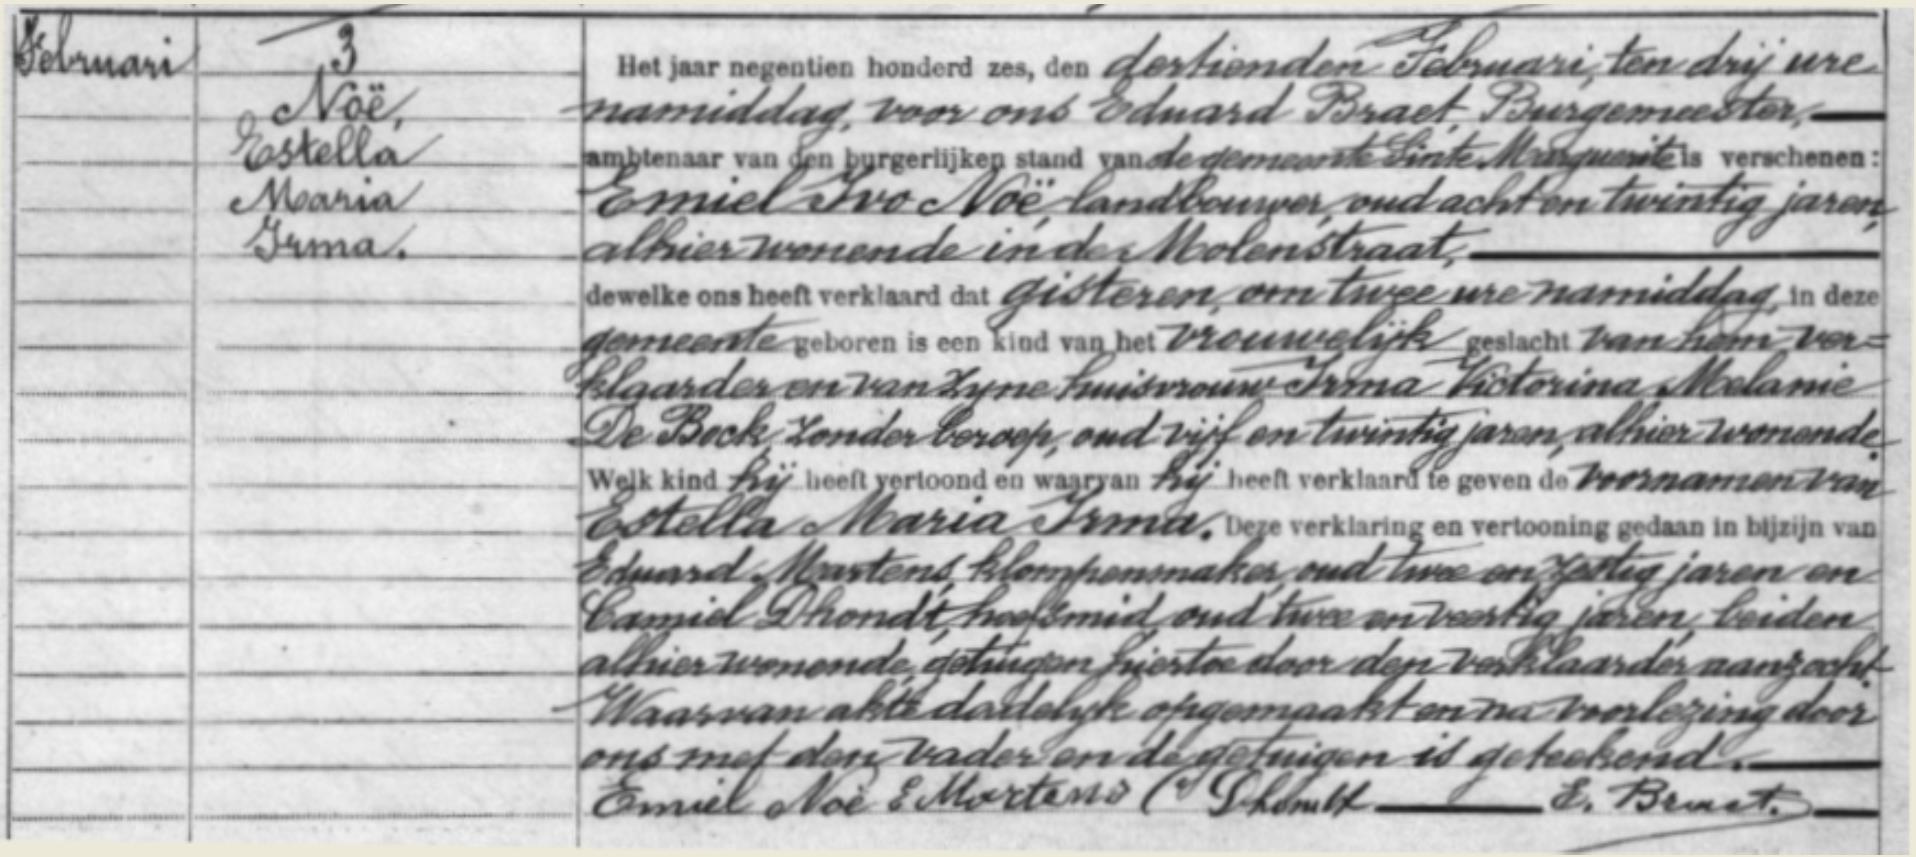 Februari
3
Noë,
Estella
Maria
Irma.
Het jaar negentien honderd zes, den dertienden Februari, ten drij ure
namiddag, voor ons Eduard Braet, Burgemeester,
ambtenaar van den burgerlijken stand van de gemeente Sinte Marguerite is verschenen:
Emiel Ivo Noë, landbouwer, oud acht en twintig jaren,
alhier wonende in de Molenstraat,
dewelke ons heeft verklaard dat gisteren, om twee ure namiddag, in deze
gemeente geboren is een kind van het vrouwelijk geslacht van hem ver=
klaarder en van zyne huisvrouw Irma Victorina Melanie
De Bock, zonder beroep, oud vijf en twintig jaren, alhier wonende.
Welk kind hij heeft vertoond en waarvan hij heeft verklaard te geven de voornamen van
Estella Maria Irma. Deze verklaring en vertooning gedaan in bijzijn van
Eduard Martens, klompenmaker, oud twee en zestig jaren en
Camiel Dhondt, hoefsmid, oud twee en veertig jaren, beiden
alhier wonende, getuigen hiertoe door den verklaarder aanzocht.
Waarvan akte dadelyk opgemaakt en na voorlezing door
ons met den vader en de getuigen is geteekend.
Emiel Noë E Martens C Dhondt E. Braet.